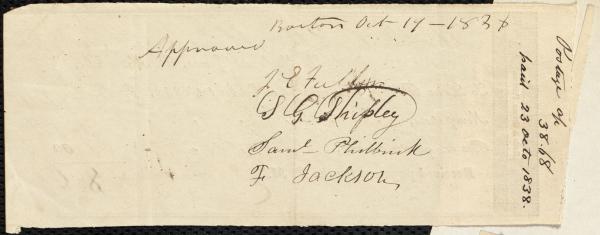 Boston Oct 17 - 1838
Approved
J E Fuller
S G Shipley
Saml Philbrick
F Jackson
Postage &c
38.68
paid 23 Octo 1838.